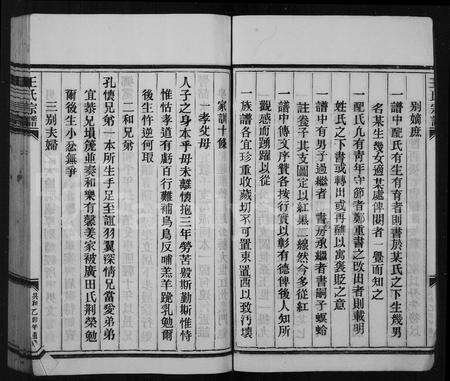 別嫡庶
一譜中配氏有生有育者則書於某氏之下生幾男
名某生幾女適某處俾閱者一覽而知之
一配氏凡有青年守節者鄭重書之改出者則載明
姓氏之下書或轉出或再醮以寓褒貶之意
一譜中有男子過繼者書承繼者書嗣子螟蛉
註卷子其支圖定以紅黑二線然今多從紅
一譜中傳文序贊各按行實以彰有德俾後人知所
觀感而踴躍以從
一族譜各宜珍重收藏切不可置東置西以致汚壞
王氏宗譜
家訓十條
一孝父母
人子之身本乎母未離懷抱三年勞苦殷斯勤斯惟恃
惟怙孝道有虧百行難補烏鳥反哺羔羊跪乳勉爾
後生忤逆何取
二和兄弟
孔懷兄弟一本所生手足至誼羽翼深情兄當愛弟弟
宜恭兄塤篪並奏和樂有馨姜家被廣田氏荊榮勉
爾後生小忿無爭
三別夫婦